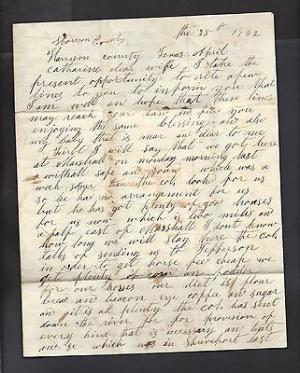 Harrison County
the 25th 1862
Harrison County Texas April
Catharine dear wife I take the
present opportunity to rite a few
lines to you to inform you that
I am well an hope that these lines
may reach your han an fine you
enjoying the same blessing an also
my baby that is mar an dear to me
first I will say that we got here
at Marshall on monday morning last
withall safe an soun which was a
wah days the cols look for us
so he has no arrangement for us
but he has got plenty of good houses
for us now which is two miles an
a half east of Marshall I dont know
how long we will stay here the cols
talks of sending us to Jefferson
in order to get horse fee cheap we
got plenty of corn an fodder
for our horses our diet is flour
bread an beacon rye coffee an sugar
an it is all plenty the col has sent
down the river for provision of
every kind that is necessary an tents
an se which was in Shreveport last